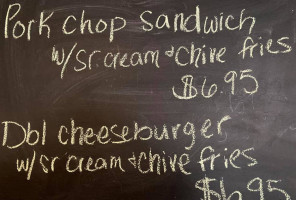 Pork chop sandwich
w/Sr. cream + chive fries
$6.95
Dbl cheeseburger
w/sr cream + chive fries
$6.95